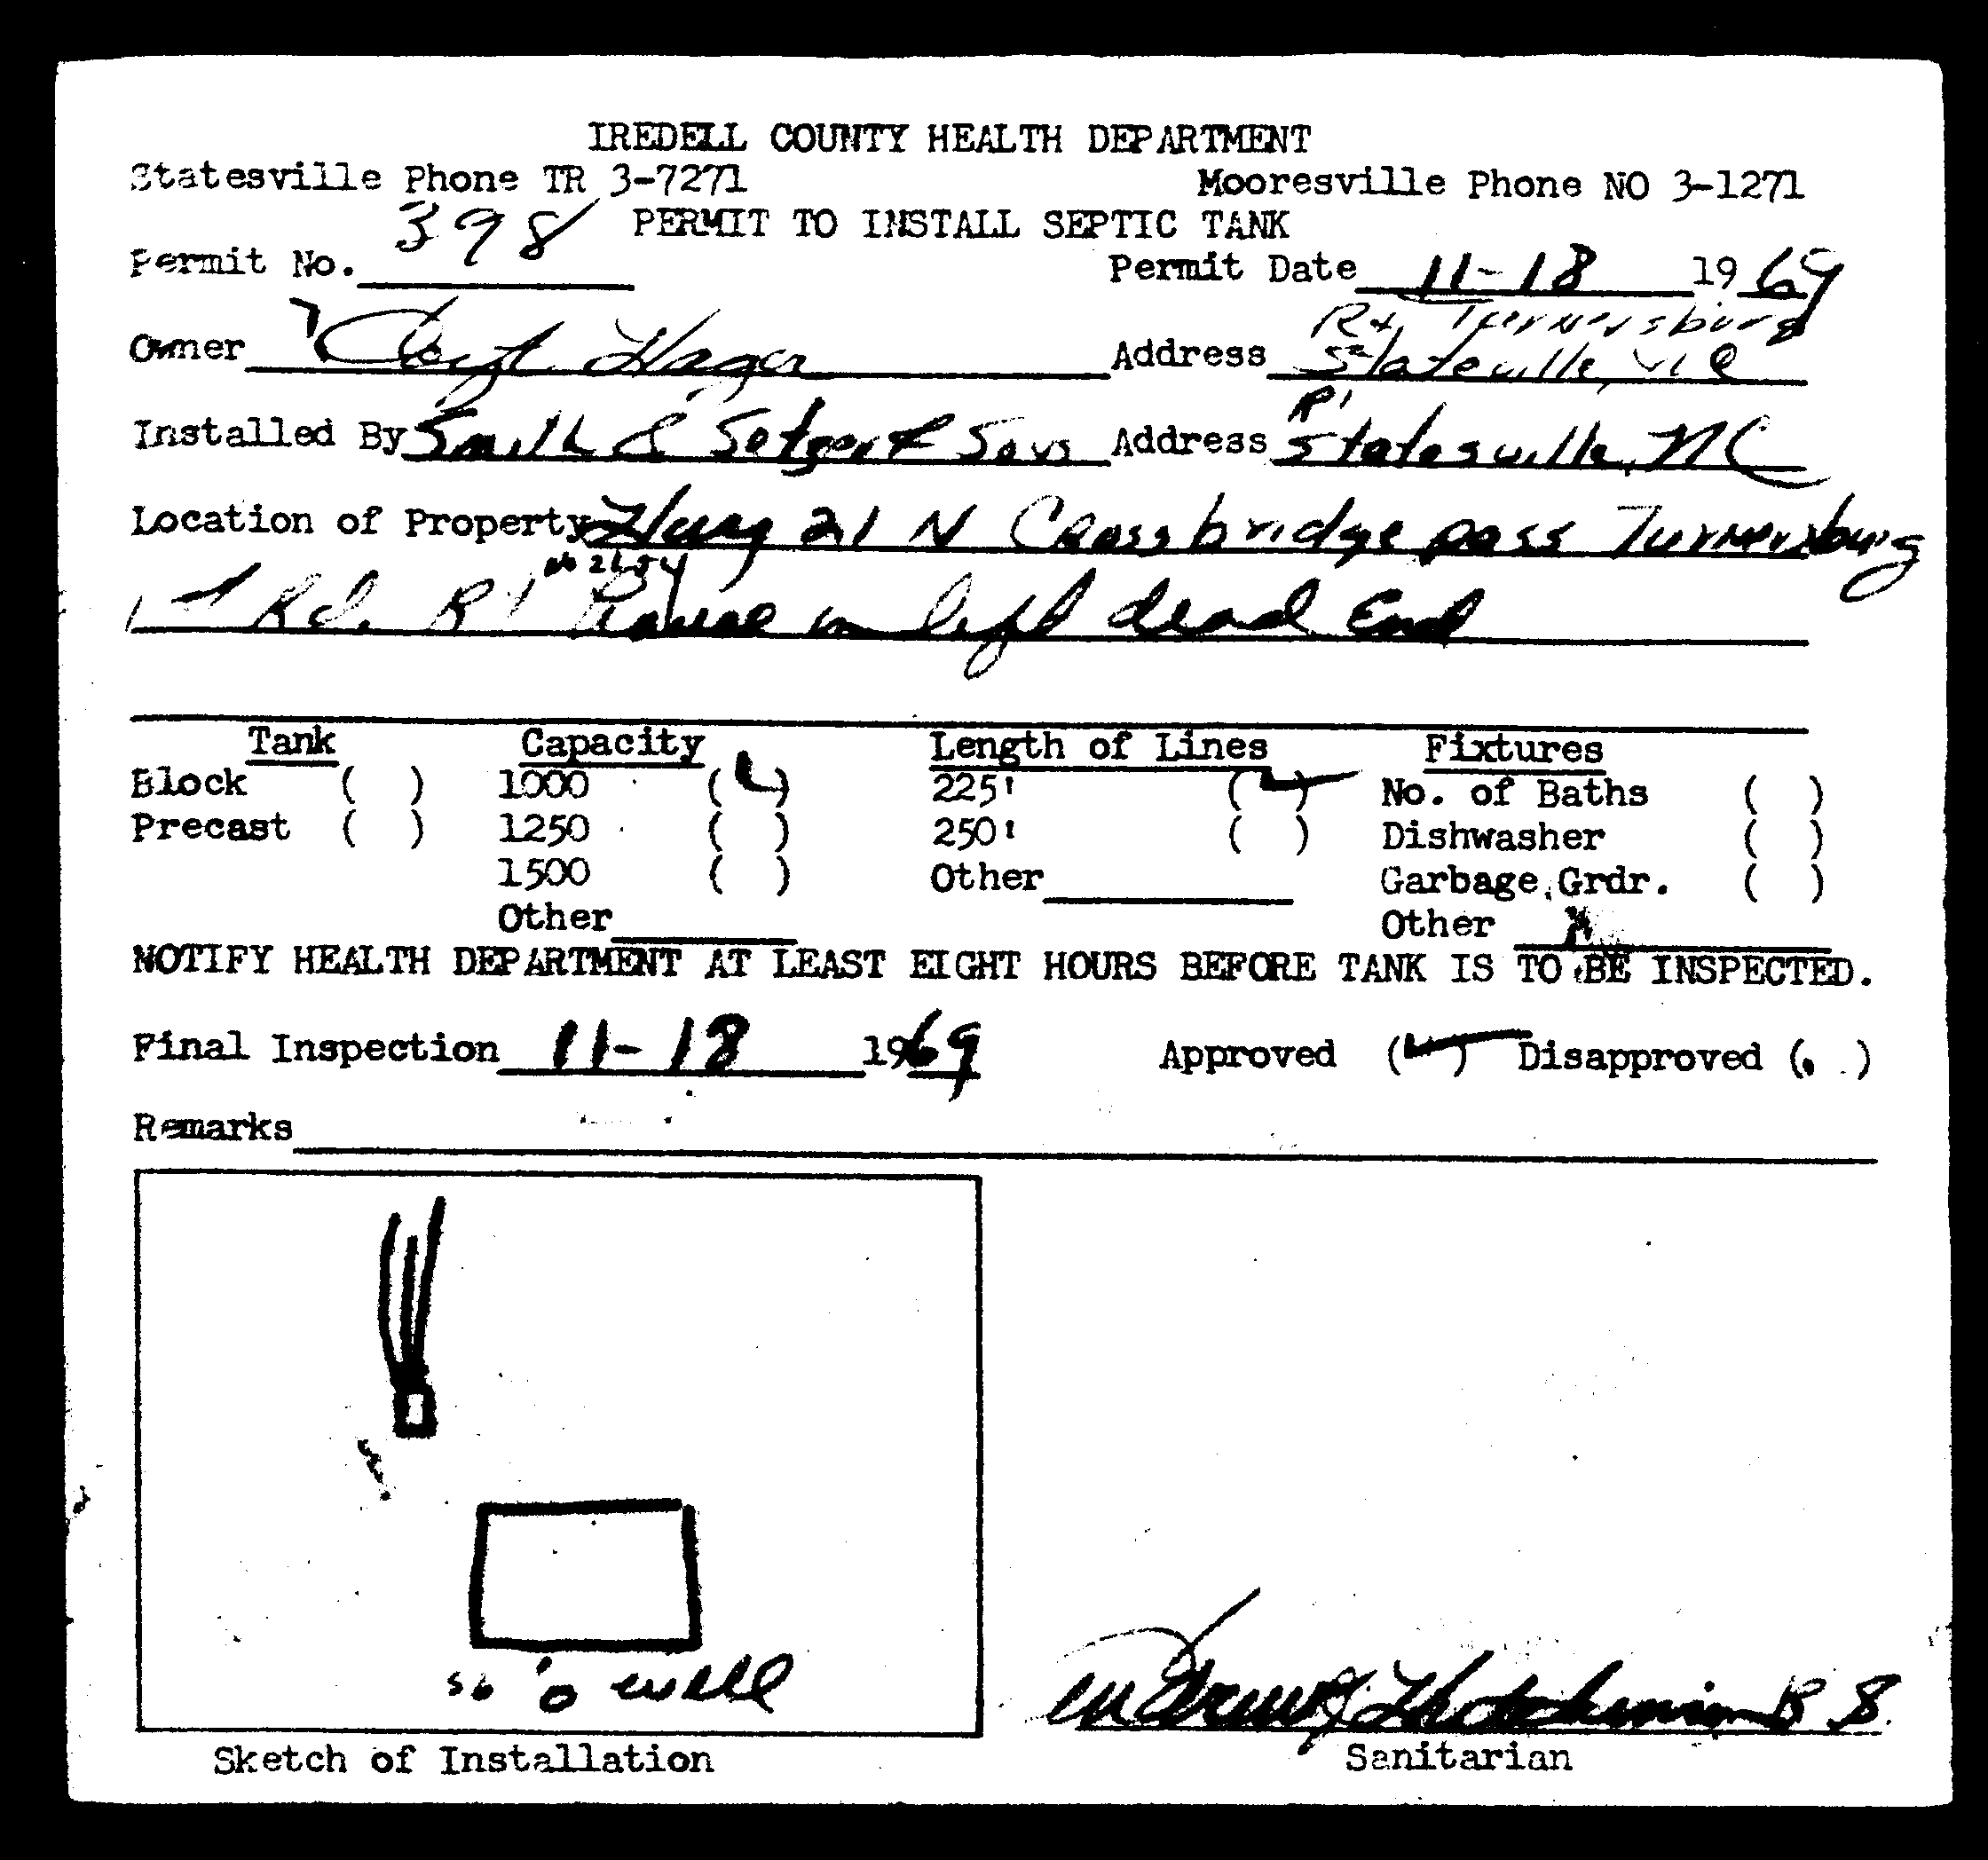 IREDELL COUNTY HEALTH DEPARTMENT
Statesville Phone TR 3-7271 Mooresville Phone NO 3-1271
PERMIT TO INSTALL SEPTIC TANK
Permit No. 398 Permit Date 11-18 1969
Rt, Turnersburg
Owner Hager Address Statesville, N C
R1
Installed By Smith & Setzer & Sons Address Statesville, NC
Location of Property Hwy 21 N Cross bridge pass Turnersburg
1st Rd. Rt house on left dead End
Tank Capacity Length of Lines Fixtures
Block ( ) 1000 (✓) 225' (✓) No. of Baths ( )
Precast ( ) 1250 ( ) 250' ( ) Dishwasher ( )
1500 ( ) Other Garbage Grdr. ( )
Other Other
NOTIFY HEALTH DEPARTMENT AT LEAST EIGHT HOURS BEFORE TANK IS TO BE INSPECTED.
Final Inspection 11-18 1969 Approved (✓) Disapproved ( )
Remarks
well
R S.
Sketch of Installation Sanitarian